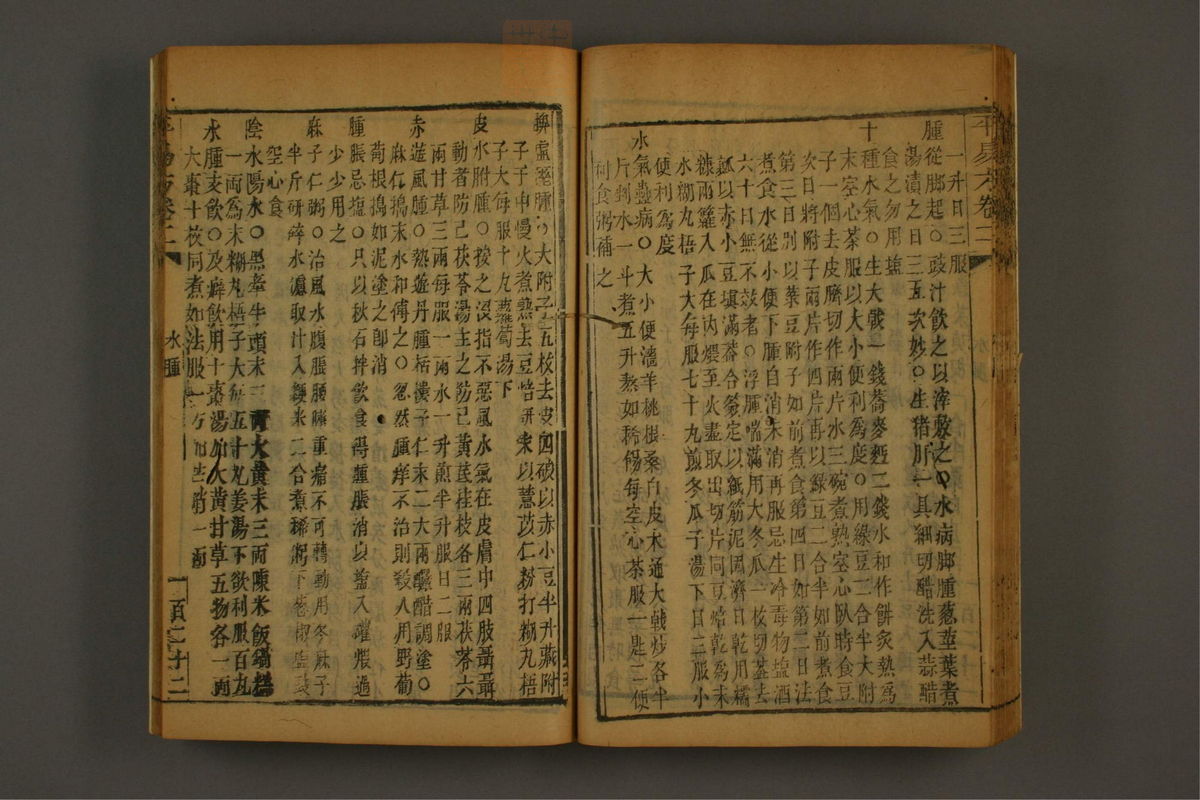 一升日三服
腫從脚起○豉汁飲之以滓敷之○水病脚腫葱莖葉煮
湯漬之日三五次妙○生猪肝一具細切醋洗入蒜醋
食之勿用鹽
十種水氣○生大戟一錢蕎麥麪二錢水和作餅炙熟爲
末空心茶服以大小便利爲度○用綠豆二合半大附
子一個去皮臍切作兩片水三碗煮熟空心臥時食豆
次日將附子兩片作四片再以綠豆二合半如前煮食
第三日別以菉豆附子如前煮食第四日如第二日法
煮食水從小便下腫自消未消再服忌生冷毒物塩酒
六十日無不效者○浮腫喘滿用大冬瓜一枚切蓋去
瓤以赤小豆填滿蓋合簽定以紙筋泥固濟日乾用糯
糠兩籮入瓜在内煨至火盡取出切片同豆焙乾爲末
水糊丸梧子大每服七十丸煎冬瓜子湯下日三服小
便利爲度
水氣蠱病○大小便濇羊桃根桑白皮木通大戟炒各半
斤剉水一斗煮五升熬如稀餳每空心茶服一匙二便
利食粥補之
脾虛濕腫○大附子五枚去皮四破以赤小豆半升藏附
子于中慢火煮熟去豆焙研末以薏苡仁粉打糊丸梧
子大每服十丸蘿蔔湯下
皮水胕腫○按之沒指不惡風水氣在皮膚中四肢聶聶
動者防己茯苓湯主之防己黃芪桂枝各三兩茯苓六
兩甘草二兩每服一兩水一升煎半升服日二服
赤遊風腫○熱遊丹腫栝樓子仁末二大兩釅醋調塗○
麻仁搗末水和傅之○忽然腫痒不治則殺人用野葡
萄根搗如泥塗之即消
腫脹忌塩○只以秋石拌飲食得腫脹消以塩入罐煨過
少少用之
麻子仁粥○治風水腹脹腰臍重痛不可轉動用冬麻子
半斤研碎水濾取汁入粳米二合煮稀粥下葱椒塩豉
空心食
陰水陽水○黑牽牛頭末三兩大黄末三兩陳米飯鍋糕
一兩爲末糊丸梧子大每五十丸姜湯下欲利服百丸
水腫支飲○及癖飲用十棗湯加大黄甘草五物各一兩
大棗十枚同煮如法服一方加芒硝一兩
水腫
一百二十二